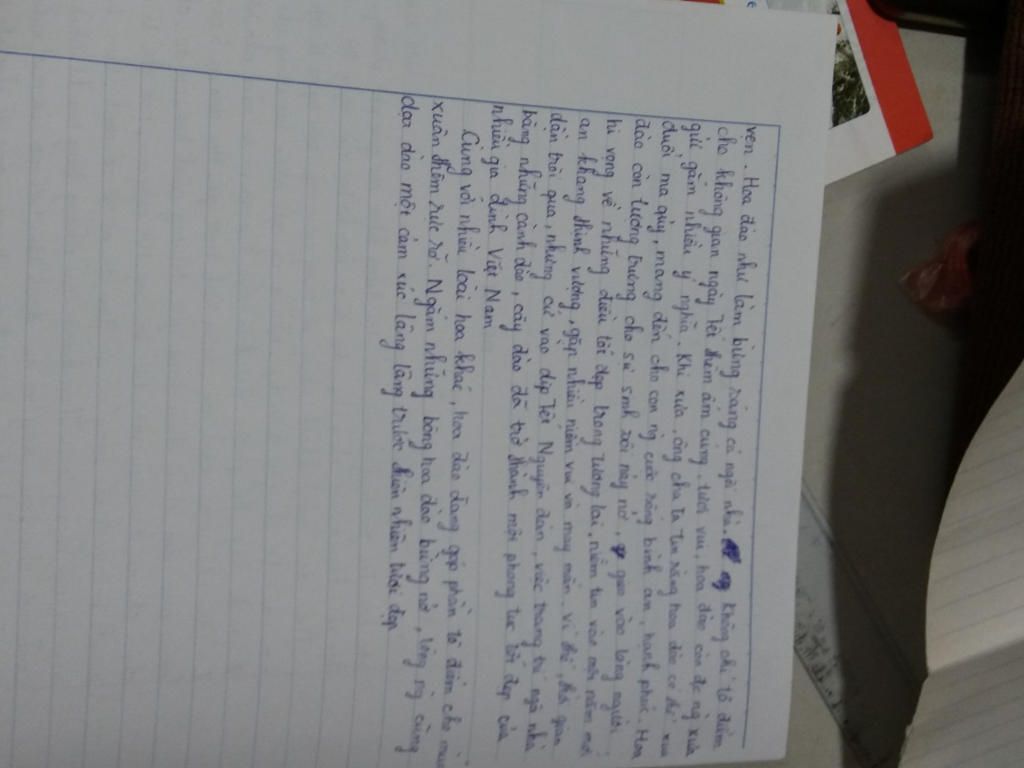 vẹn. Hoa đào như làm bừng sáng cả ngôi nhà. Không chỉ tô điểm
cho không gian ngày Tết thêm ấm cúng, tươi vui, hoa đào còn đc ng xưa
gửi gắm nhiều ý nghĩa. Khi xưa, ông cha ta tin rằng hoa đào có thể xua
đuổi ma quỷ, mang đến cho con ng cuộc sống bình an, hạnh phúc. Hoa
đào còn tượng trưng cho sự sinh sôi nảy nở, gieo vào lòng người
hi vọng về những điều tốt đẹp trong tương lai, niềm tin vào một năm mới
an khang thịnh vượng, gặp nhiều niềm vui và may mắn. Vì thế, thời gian
dần trôi qua, nhưng cứ vào dịp Tết Nguyên đán, việc trang trí ngôi nhà
bằng những cành đào, cây đào đã trở thành một phong tục tốt đẹp của
nhiều gia đình Việt Nam
Cùng với nhiều loài hoa khác, hoa đào đang góp phần tô điểm cho mùa
xuân thêm rực rỡ. Ngắm những bông hoa đào bừng nở, lòng ng cũng
dạt dào một cảm xúc lâng lâng trước thiên nhiên tươi đẹp